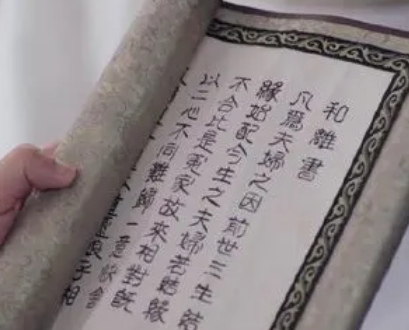 和離書
凡爲夫婦之因前世三生結
緣始配今生之夫婦若結緣
不合比是冤家故來相對既
以二心不同難歸一意快會
子相